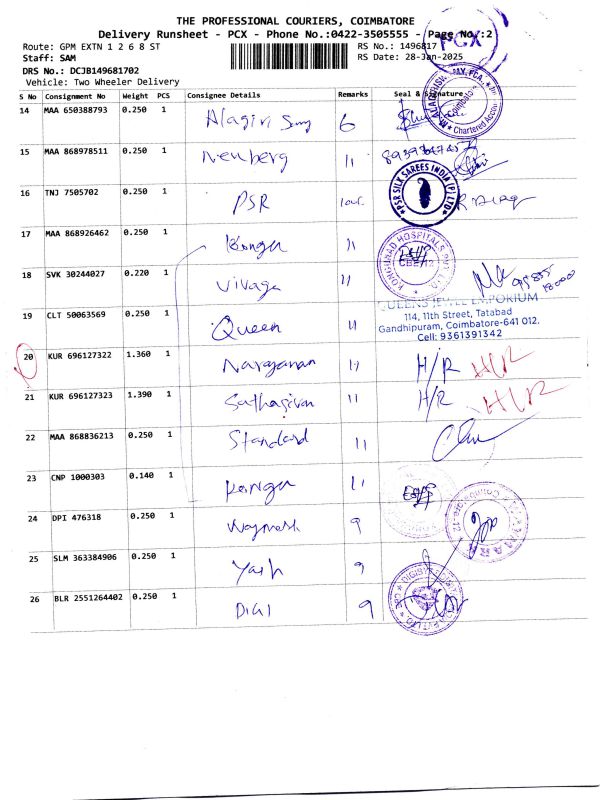 THE PROFESSIONAL COURIERS, COIMBATORE
Delivery Runsheet - PCX - Phone No.:0422-3505555 - Page No.:2
Route: GPM EXTN 1 2 6 8 ST
RS No.: 1496817
PCX
Staff: SAM
RS Date: 28-Jan-2025
DRS No.: DCJB149681702
Vehicle: Two Wheeler Delivery
S No Consignment No Weight PCS Consignee Details Remarks Seal & Signature
14 MAA 650388793 0.250 1 Alagiri Samy 6
Coimbatore
Chartered Accou
15 MAA 868978511 0.250 1 Neuberg 11
16 TNJ 7505702 0.250 1 PSR
PSR SILK SAREES INDIA (P) LTD
17 MAA 868926462 0.250 1 Konga 11
KONGUNAD HOSPITALS
CBE-12
18 SVK 30244027 0.220 1 Vivaga 11
19 CLT 50063569 0.250 1 Queen 11
QUEENS JEWEL EMPORIUM
114, 11th Street, Tatabad
Gandhipuram, Coimbatore-641 012.
Cell: 9361391342
20 KUR 696127322 1.360 1 Narayanan 11 H/R H/R
21 KUR 696127323 1.390 1 Sathasivan 11 H/R H/R
22 MAA 868836213 0.250 1 Standard 11
23 CNP 1000303 0.140 1 Konga 11
24 DPI 476318 0.250 1 9
25 SLM 363384906 0.250 1 Yash 9
26 BLR 2551264402 0.250 1 DIGI 9